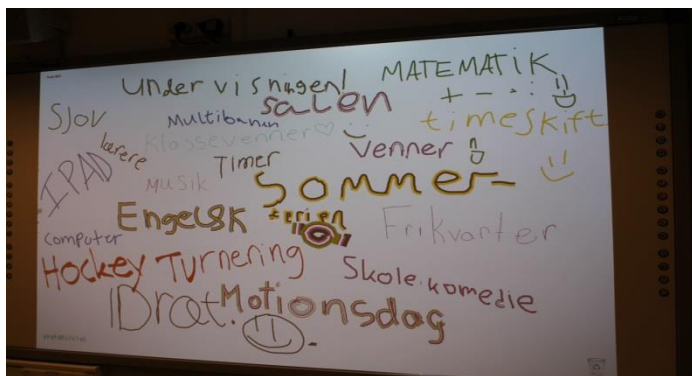 Undervisningen!
MATEMATIK
+ - · :
Salen
SJOV
Multibanen
timeskift
Klassevenner
lærere
Venner
IPAD
Timer
Musik
Sommer-
ferien
Engelsk
Frikvarter
Computer
Hockey Turnering
Skole.komedie
IDræt.
Motionsdag